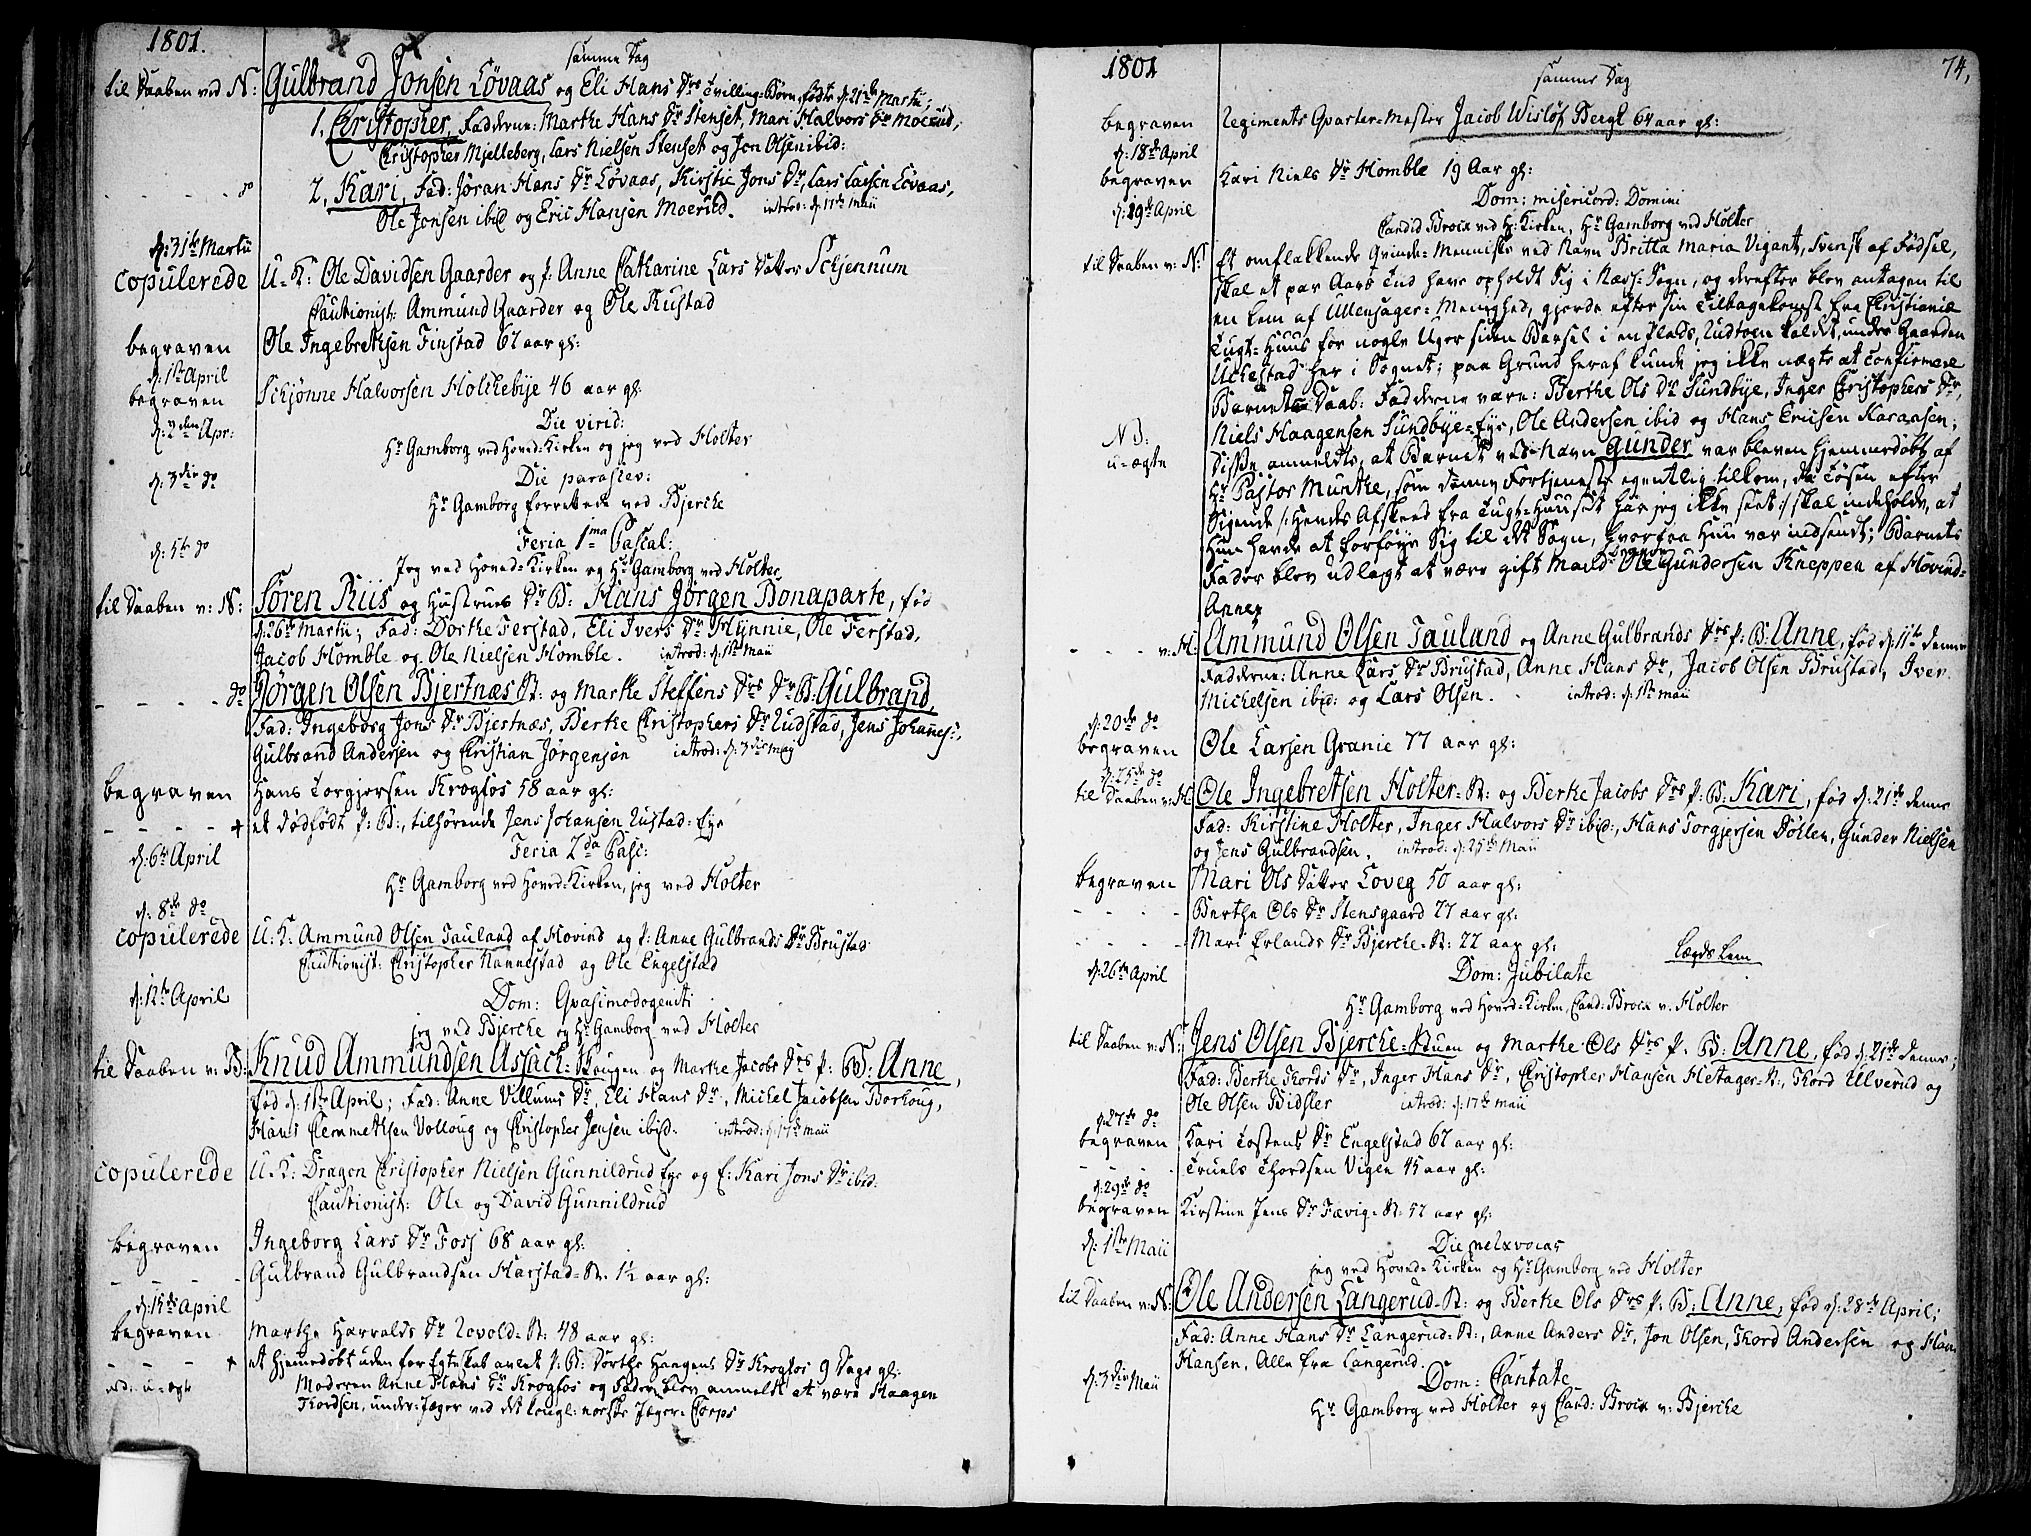 1801.
samme Dag
til Daaben ved N: Gulbrand Jonsen Løvaas og Eli Hans Drs Tvilling-Børn, fødte d: 21de Martii;
1, Christopher, Fadderne: Marthe Hans Dr Stenset, Mari Halvors Dr Moerud,
Christopher Mjelleberg, Lars Nielsen Stenset og Jon Olsen ibid:
do 2, Kari, Fad: Jøran Hans Dr Løvaas, Kirstie Jons Dr, Lars Larsen Løvaas,
Ole Jonsen ibid og Eric Hansen Moerud. introd: d: 17de Maii
d: 31te Martii
copulerede U-K: Ole Davidsen Gaarder og p: Anne Catharine Lars Datter Schjennum
Cautionist: Ammund Gaarder og Ole Rustad
begraven Ole Ingebretsen Finstad 67 aar gl:
d: 1te April
begraven Schjønne Halvorsen Holchebye 46 aar gl:
d: 2den Apr: Die virid:
Hr Gamborg ved Hoved-Kirken og jeg ved Holter
d: 3die do Die parascev:
Hr Gamborg forrettede ved Bjerche
d: 5te do Feria 1ma Pascal:
Jeg ved Hoved-Kirken og Hr Gamborg ved Holter
til Daaben v: N: Søren Riis og Hustrues Dr B: Hans Jørgen Bonaparte, fød
d: 26de Martii; Fad: Dorthe Ferstad, Eli Ivers Dr Hynnie, Ole Ferstad,
Jacob Homble og Ole Nielsen Homble. introd: d: 1te Maii
do Jørgen Olsen Bjertnæs St: og Marthe Steffens Drs Dr B: Gulbrand,
Fad: Ingeborg Jons Dr Bjertnæs, Berthe Christophers Dr Rudstad, Jens Johannes:,
Gulbrand Andersen og Christian Jørgensen introd: d: 3die may
begraven Hans Torgjersen Krogfos 58 aar gl:
+ et dødfødt p: B:, tilhørende Jens Johansen Rustad-Eye
d: 6te April Feria 2da Pasc:
Hr Gamborg ved Hoved-Kirken, jeg ved Holter
d: 8de do
copulerede U: K: Ammund Olsen Tauland af Hovind og p: Anne Gulbrands Dr Brustad
Cautionist: Christopher Nannestad og Ole Engelstad
d: 12te April Dom: Qvasimodogeniti
jeg ved Bjerche og Hr Gamborg ved Holter
til Daaben v: B: Knud Ammundsen Assach-Haugen og Marthe Jacobs Drs p: B: Anne,
fød d: 1te April; Fad: Anne Villums Dr, Eli Hans Dr, Michel Jacobsen Borhoug,
Hans Clemmethsen Volloug og Christopher Jensen ibid: introd: d: 17de Maii
copulerede U: K: Dragon Christopher Nielsen Gunnildrud Eye og p: Kari Jons Dr ibid:
Cautionist: Ole og David Gunnildrud
begraven Ingeborg Lars Dr Foss 68 aar gl:
Gulbrand Gulbrandsen Harstad-St: 1½ aar gl:
d: 15de April
begraven Marthe Harralds Dr Lovold-St: 48 aar gl:
+ et hjemmedøbt uden for Egteskab avlet p: B: Dorthe Haagens Dr Krogfos 9 Dage gl:
u-ægte Moderen Anne Hans Dr Krogfos og Fader blev anmeldt at være Haagen
Thordsen, under-Jæger ved det kongl: norske Jæger-Corps
1801
74,
samme Dag
begraven Regiments Qvarter-Mester Jacob Wisløf Bergh 64 aar gl:
d: 18de April
begraven Kari Niels Dr Homble 19 Aar gl:
d: 19de April Dom: misericord: Domini
Candid Broch ved H: Kirken, Hr Gamborg ved Holter
til Daaben v: N: Et omflakkende Qvinde-Menniske ved Navn Britta Maria Vigant, Svensk af Fødsel,
skal et par Aars Tid have opholdt sig i Næss-Sogn, og derefter blev antagen til
en Lem af Ullensager-Menighed, gjorde efter sin Tilbagekomst fra Christianiæ
Tugt-Huus for nogle Uger siden Barsel i en Plads, Rudtoen kaldet, under Gaarden
Uckestad her i Sognet; paa Grund heraf kunde jeg ikke nægte at confirmere
Barnets Daab: Fadderne vare: Berthe Ols Dr Sundbye, Inger Christophers Dr,
NB: Niels Haagensen Sundbye-Eye, Ole Andersen ibid og Hans Ericsen Karaasen;
u-ægte Disse anmeldte, at Barnet ved Navn Gunder var bleven hjemmedøbt af
Hr Pastor Munthe, som denne Fortjeneste egentlig tilkom, da Tøsen efter
Sigende /: hendes Afskeed fra Tugt-Huuset har jeg ikke seet :/ skal indeholde, at
hun havde at forføye sig til det Sogn, hvorfra hun var indsendt; Barnets
Fader blev udlagt at være gift Mand Dragon Ole Gundersen Kneppen af Hovind-
Annex
v: H: Ammund Olsen Tauland og Anne Gulbrands Drs p: B: Anne, fød d: 11te denne
Fadderne: Anne Lars Dr Brustad, Anne Hans Dr, Jacob Olsen Brustad, Iver
Michelsen ibid: og Lars Olsen. introd: d: 1te Maii
d: 20de do
begraven Ole Larsen Granie 77 aar gl:
d: 25de do
til Daaben v: H: Ole Ingebretsen Holter-St: og Berthe Jacobs Drs p: B: Kari, fød d: 21de denne
Fad: Kirstine Holter, Inger Halvors Dr ibid:, Hans Torgjersen Døhlen, Gunder Nielsen
og Jens Gulbrandsen. introd: d: 25de Maii
begraven Mari Ols Datter Loveg 50 aar gl:
Berthe Ols Dr Stensgaard 77 aar gl:
Mari Erlands Dr Bjerche-St: 22 aar gl: Lægds Lem
d: 26de April Dom: Jubilate
Hr Gamborg ved Hoved-Kirken, Cand: Broch v: Holter
til Daaben v: N: Jens Olsen Bjerche-Huen og Marthe Ols Drs p: B: Anne, fød d: 21de denne;
Fad: Berthe Thords Dr, Inger Hans Dr, Christopher Hansen Hetager-St:, Thord Ulverud og
Ole Olsen Bidsler introd: d: 17de Maii
d: 27de do
begraven Kari Tostens Dr Engelstad 67 aar gl:
Truels Thordsen Vigen 45 aar gl:
d: 29de do
begraven Kirstine Jens Dr Fævig-St: 57 aar gl:
d: 1te Maii Die
jeg ved Hoved-Kirken og Hr Gamborg ved Holter
til Daaben v: N: Ole Andersen Langerud-St: og Berthe Ols Drs p: B: Anne, fød d: 28de April;
Fad: Anne Hans Dr Langerud-St:, Anne Anders Dr, Jon Olsen, Thord Andersen og Hans
Hansen, Alle fra Langerud.
d: 3die Maii Dom: Cantate
Hr Gamborg ved Holter og Cand: Broch v: Bjerche